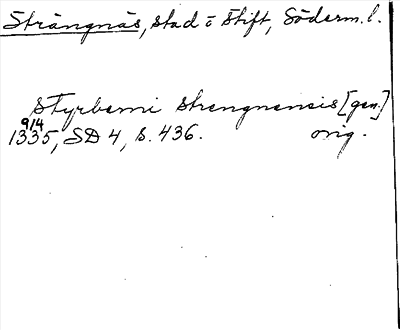 Strängnäs, stad o Stift, Söderm. l.
Styrberni Strengnensis [gen.]
9/4
1335, SD 4, s. 436. orig.